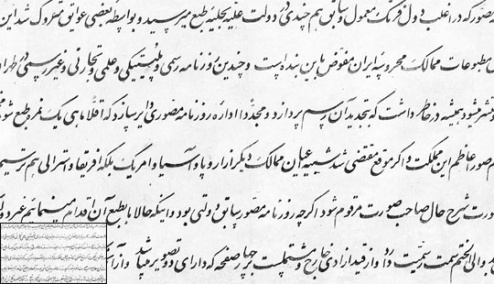 مصور که در اغلب دول فرنگ معمول و سابق هم چندی در دولت علیه بحلیه طبع میرسید و بواسطه بعضی عوائق متروک شد این
مطبوعات ممالک محروسه ایران مفوض باین بنده است و چندین روزنامه رسمی و پلیتیکی و علمی و تجارتی و غیر رسمی در طهران
نشر میشود همیشه در خاطر داشت که تجدید آن رسم پردازد و مجددا اداره روزنامه مصوری دایر سازد که اقلا ماهی یک نمره طبع شود
صور اعاظم این مملکت و اگر موقع مقتضی شد شبیه اعیان ممالک دیگر از اروپا و آسیا و امریک بلکه افریقا و استرالی هم ترسیم
شرح حال صاحب صورت مرقوم شود اگرچه روزنامه مصور سابق دولتی بود و اینکه حالا بطبع آن اقدام مینمائیم غیر دولتی
سمت رسمیت دارد و از قید ازادی خارج و مشتملست بر چهار صفحه که دارای دو تصویر میباشد و از